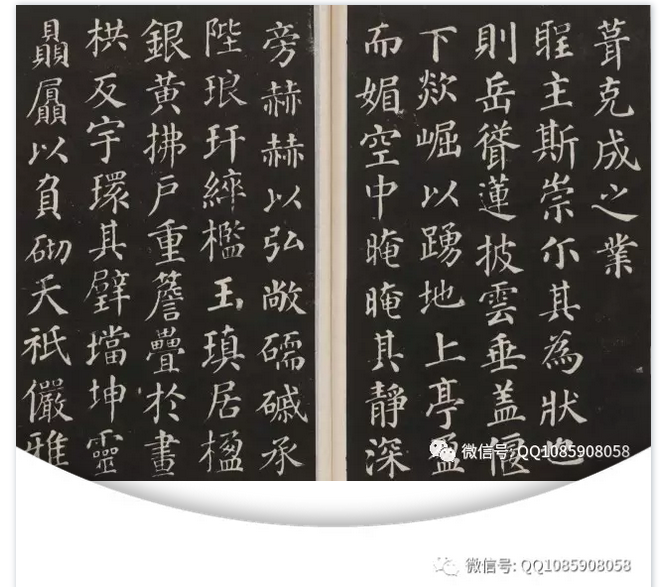 葺克成之業
聖主斯崇尒其為狀也
則岳聳蓮披雲垂盖偃
下欻崛以踴地上亭盈
而媚空中晻晻其靜深
旁赫赫以弘敞礝磩承
陛琅玕綷檻玉瑱居楹
銀黃拂戶重簷疊於畫
栱反宇環其璧璫坤靈
贔屭以負砌天祇儼雅
微信号: QQ1085908058
微信号: QQ1085908058